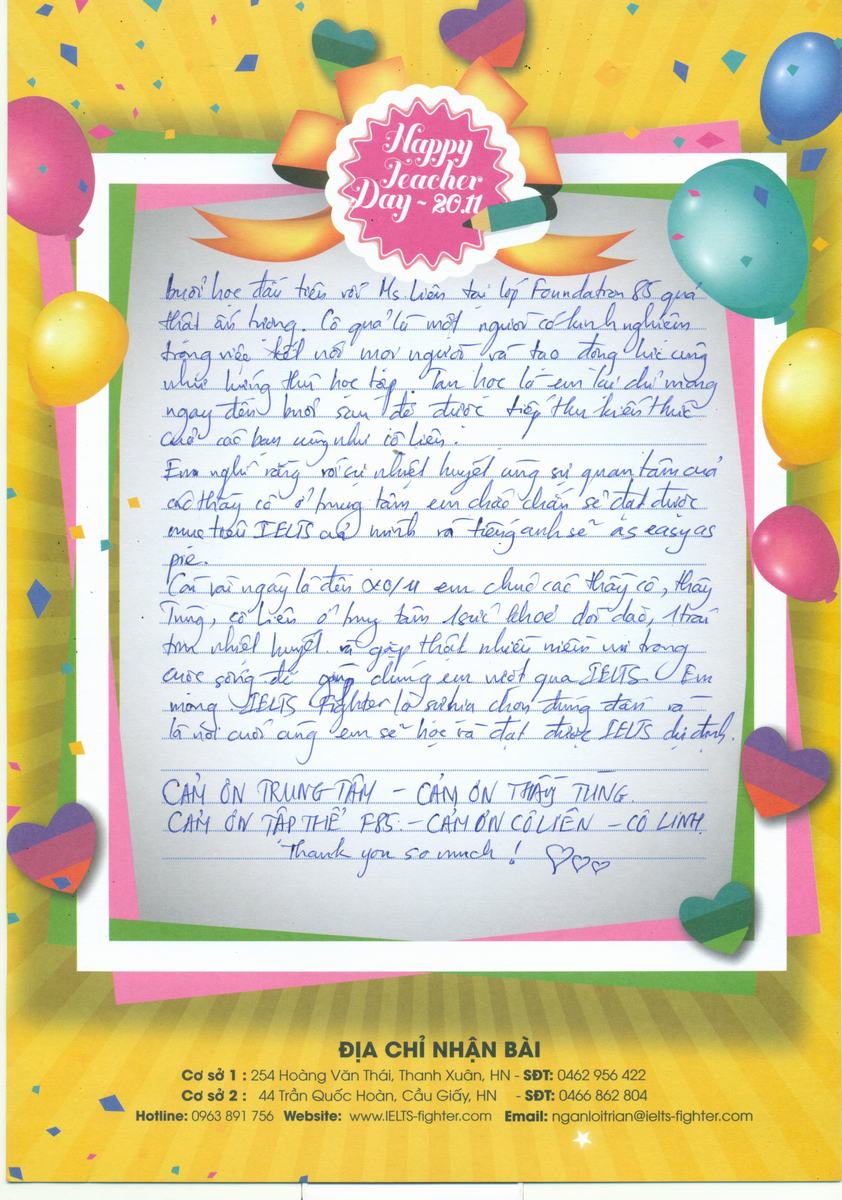 Happy
Teacher
Day ~ 20.11
buổi học đầu tiên với Ms Liên tại lớp Foundation 85 quả
thật ấn tượng. Cô quả là một người có kinh nghiệm
trong việc kết nối mọi người và tạo động lực cũng
như hứng thú học tập. Tan học là em lại chỉ mong
ngay đến buổi sau để được tiếp thu kiến thức
các bạn cũng như cô Liên.
Em nghĩ rằng với sự nhiệt huyết cùng sự quan tâm của
các thầy cô ở trung tâm em chắc chắn sẽ đạt được
mục tiêu IELTS của mình và tiếng anh sẽ as easy as
pie.
Còn vài ngày là đến 20/11 em chúc các thầy cô, thầy
Tùng, cô Liên ở trung tâm 1 sức khoẻ dồi dào, 1 trái
tim nhiệt huyết và gặp thật nhiều niềm vui trong
cuộc sống để cùng chúng em vượt qua IELTS. Em
mong IELTS Fighter là sự lựa chọn đúng đắn và
là nơi cuối cùng em sẽ học và đạt được IELTS dự định.
CẢM ƠN TRUNG TÂM – CẢM ƠN THẦY TÙNG.
CẢM ƠN TẬP THỂ F85. – CẢM ƠN CÔ LIÊN – CÔ LINH
Thank you so much !
ĐỊA CHỈ NHẬN BÀI
Cơ sở 1 : 254 Hoàng Văn Thái, Thanh Xuân, HN - SĐT: 0462 956 422
Cơ sở 2 : 44 Trần Quốc Hoàn, Cầu Giấy, HN - SĐT: 0466 862 804
Hotline: 0963 891 756 Website: www.IELTS-fighter.com Email: nganloitrian@ielts-fighter.com